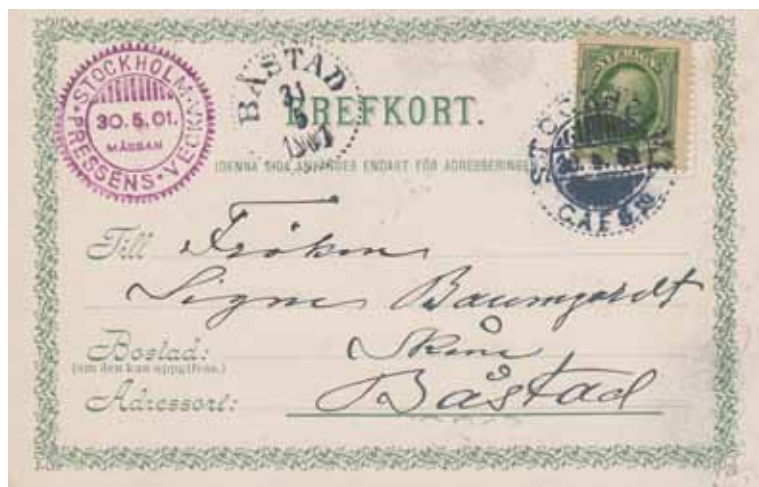 STOCKHOLM
30.5.01.
MÄSSAN
PRESSENS·VECKA
BÅSTAD
31
5
1901
BREFKORT.
(DENNA SIDA ANVÄNDES ENDAST FÖR ADRESSERINGEN
SVERIGE
STOCKHOLM
30. 5. 01
Till Fröken
Signe Baumgardt
Bostad: Skåne
(om den kan uppgifvas.)
Adressort: Båstad